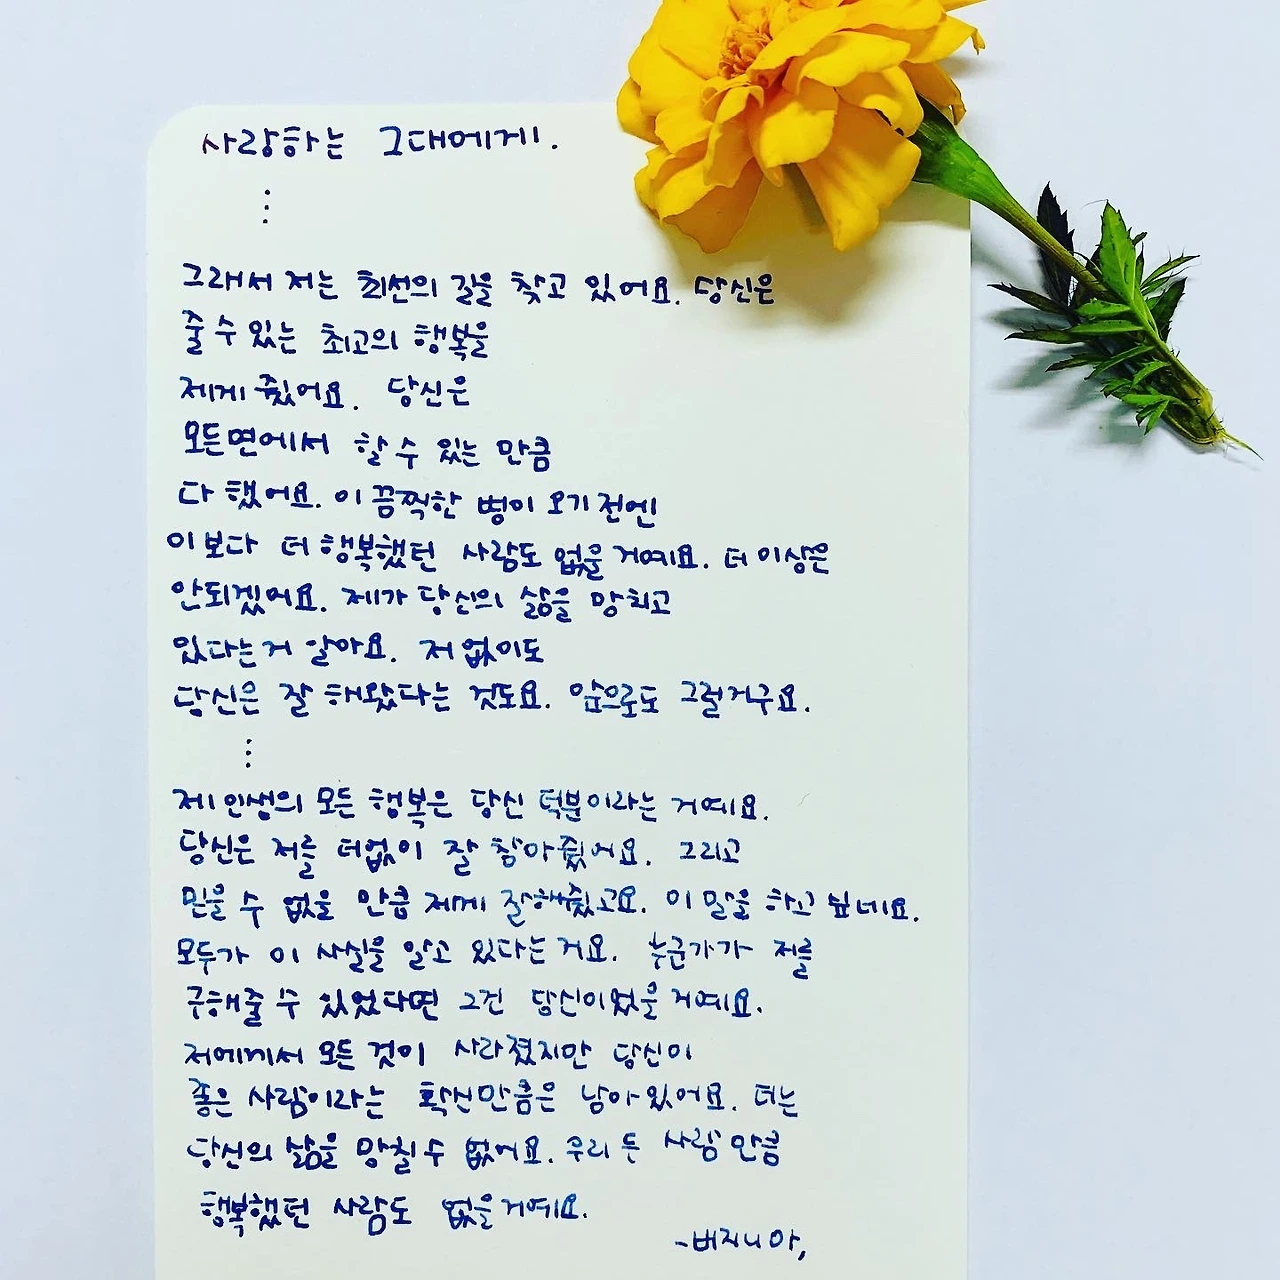 사랑하는 그대에게.
⋮
그래서 저는 최선의 길을 찾고 있어요. 당신은
줄 수 있는 최고의 행복을
제게 줬어요. 당신은
모든면에서 할 수 있는 만큼
다 했어요. 이 끔찍한 병이 오기 전엔
이보다 더 행복했던 사람도 없을거예요. 더 이상은
안되겠어요. 제가 당신의 삶을 망치고
있다는거 알아요. 저 없이도
당신은 잘 해왔다는 것도요. 앞으로도 그럴거구요.
⋮
제 인생의 모든 행복은 당신 덕분이라는 거예요.
당신은 저를 더없이 잘 참아줬어요. 그리고
믿을 수 없을 만큼 제게 잘해줬고요. 이 말을 하고 싶네요.
모두가 이 사실을 알고 있다는 거요. 누군가가 저를
구해줄 수 있었다면 그건 당신이었을거예요.
저에게서 모든 것이 사라졌지만 당신이
좋은 사람이라는 확신만큼은 남아있어요. 더는
당신의 삶을 망칠수 없어요. 우리 둔 사람 만큼
행복했던 사람도 없을거예요.
-버지니아,